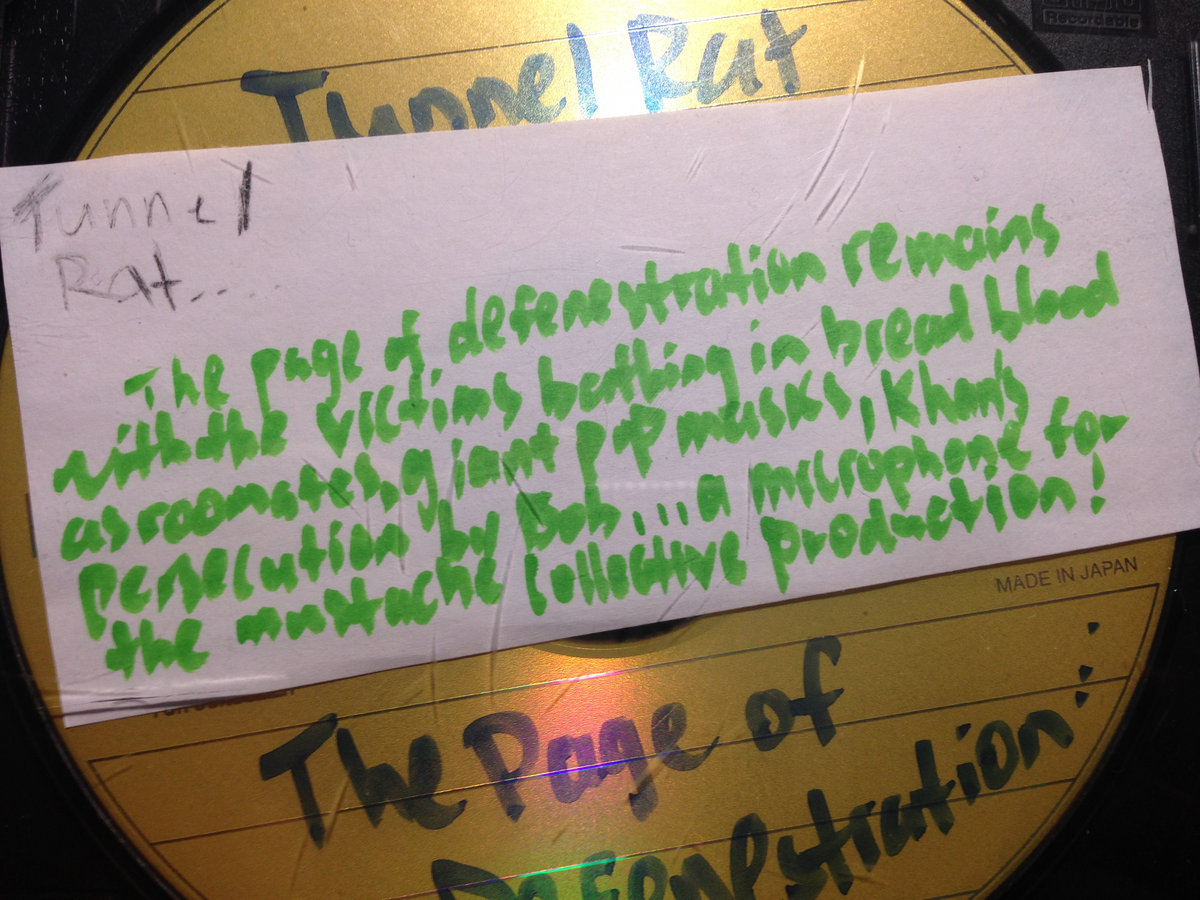 Recordable
Tunnel Rat
Tunnel
Rat.....
The page of defenestration remains
with the victims bathing in bread blood
as roomates, giant pop masks, Khan's
persecution by Bob...a microphone for
the mustache collective production!
MADE IN JAPAN
The Page of
Defenestration: